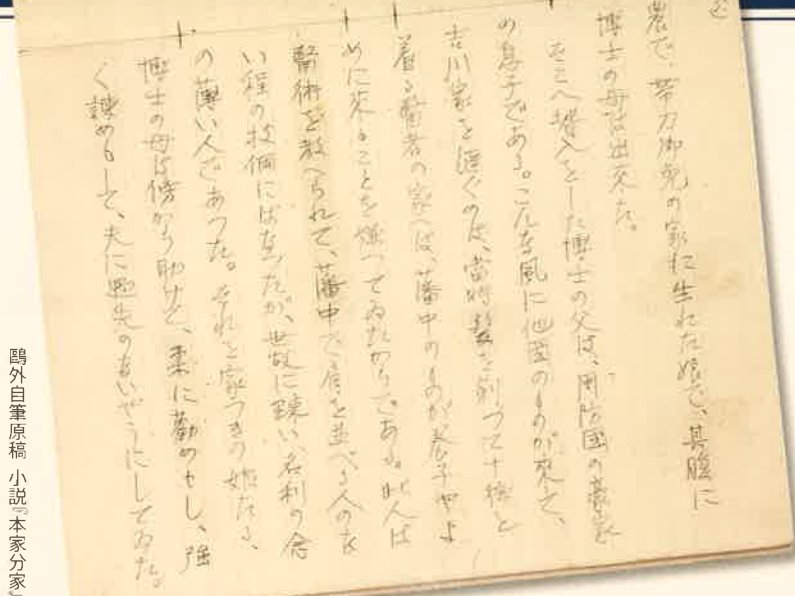 農で、帯刀御免の家に生れた娘で、其腹に
博士の母は出來た。
そこへ壻入をした博士の父は、周防國の豪家
の息子である。こんな風に他國のものが來て、
吉川家を継ぐのは、當時髪を剃つて十徳を
着る醫者の家へは、藩中のものが養子やよ
めに來ることを嫌つてゐたからである。此人は
醫術を教へられて、藩中で肩を並べる人のな
い程の技倆にはなつたが、世故に疎い、名利の念
の薄い人であつた。それを家つきの娘たる、
博士の母は傍から助けて、柔に勸めもし、強
く諌めもして、夫に過失のないやうにしてゐた。
鷗外自筆原稿 小説『本家分家』